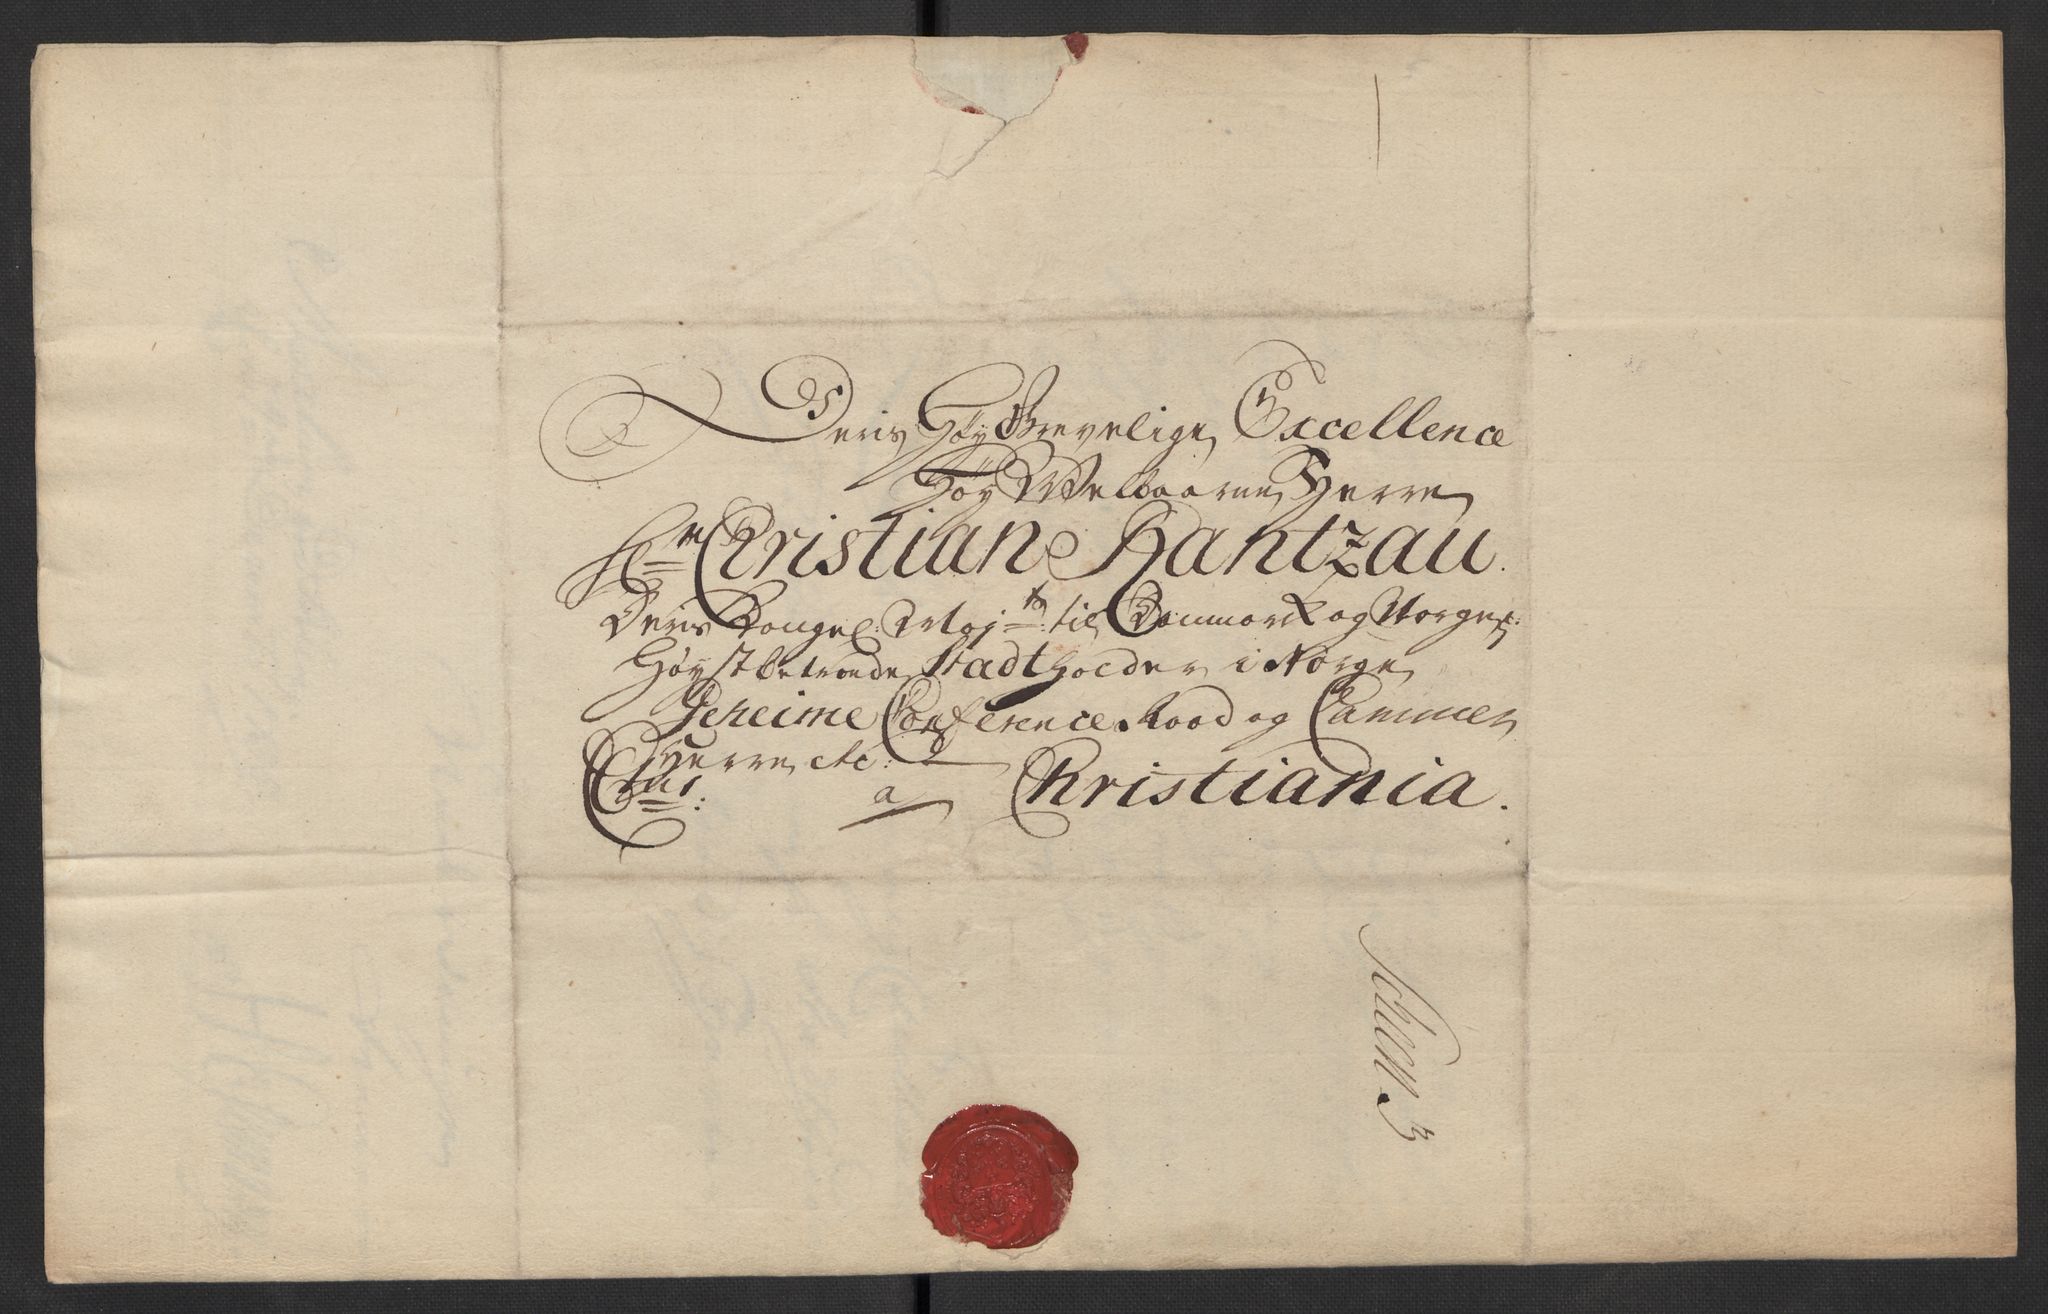 Deris Høy Grevelige Excellence
Høy Welbaarne Herre
Hr Christian Rantzau.
Deris Kongel: Majts: til Danmark og Norges:
Høystbetroede Stadtholder i Norge
Geheime Conference Raad og Cammer
Herre etc:
a Christiania.